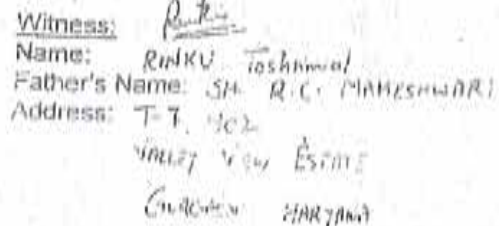 Witness:
Name: RINKU Toshniwal
Father's Name: SH. R.C. MAHESHWARI
Address: T-7, 402
VALLEY VIEW ESTATE
GURGAON HARYANA